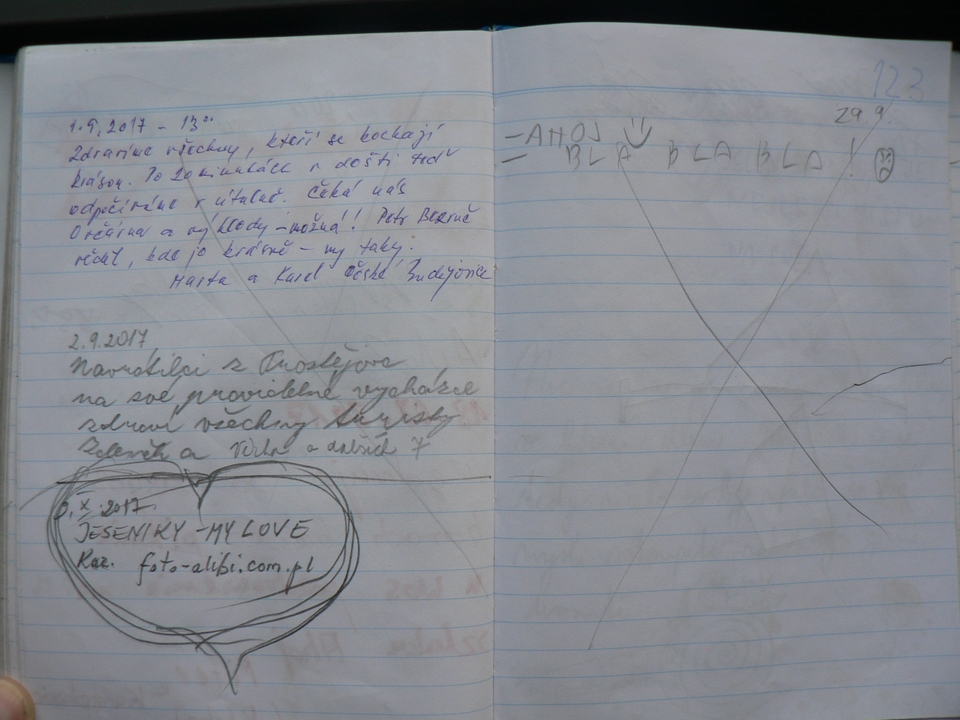 1.9.2017 - 13⁰⁰
Zdravíme všechny, kteří se kochají
krásou. Po v dešti teď
odpočíváme v útulně. Čeká nás
a výhledy - možná! Petr Bezruč
věděl, kde je krásně - my taky.
Marta a Karel České Budějovice
2.9.2017
Navrátilci z Prostějova
na své pravidelné vycházce
zdraví všechny turisty
Zdeněk a a dalších 7
X. 2017
JESENIKY - MY LOVE
Raz. foto-alibi.com.pl
123
29.9.
- AHOJ
- BLA BLA BLA !